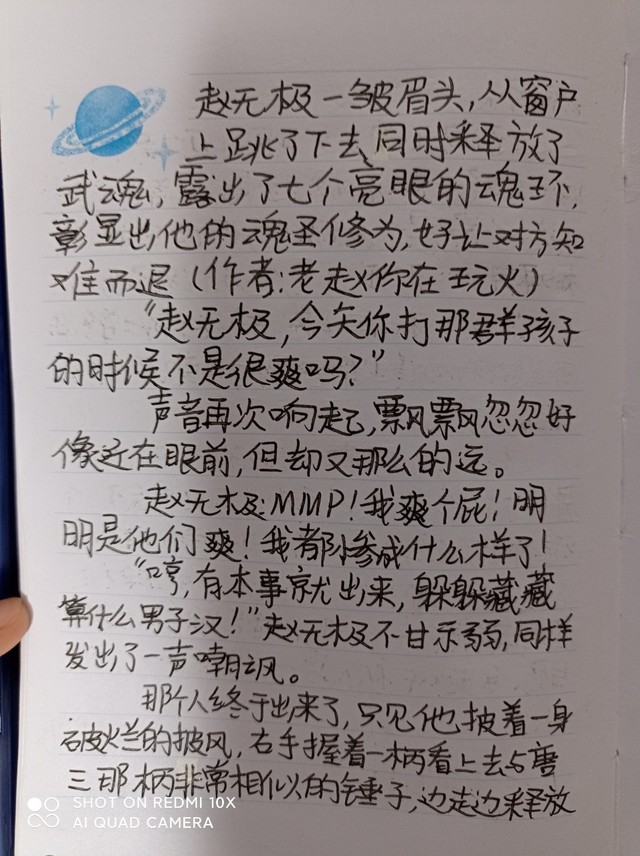 赵无极一皱眉头,从窗户
上跳了下去,同时释放了
武魂,露出了七个亮眼的魂环,
彰显出他的魂圣修为,好让对方知
难而退(作者:老赵你在玩火)
“赵无极,今天你打那群孩子
的时候不是很爽吗?”
声音再次响起,飘飘忽忽好
像近在眼前,但却又那么的远。
赵无极:MMP!我爽个屁!明
明是他们爽!我都惨成什么样了!
“哼,有本事就出来,躲躲藏藏
算什么男子汉!”赵无极不甘示弱,同样
发出了一声嘲讽。
那个人终于出来了,只见他披着一身
破烂的披风,右手握着一柄看上去与唐
三那柄非常相似的锤子,边走边释放
SHOT ON REDMI 10X
AI QUAD CAMERA